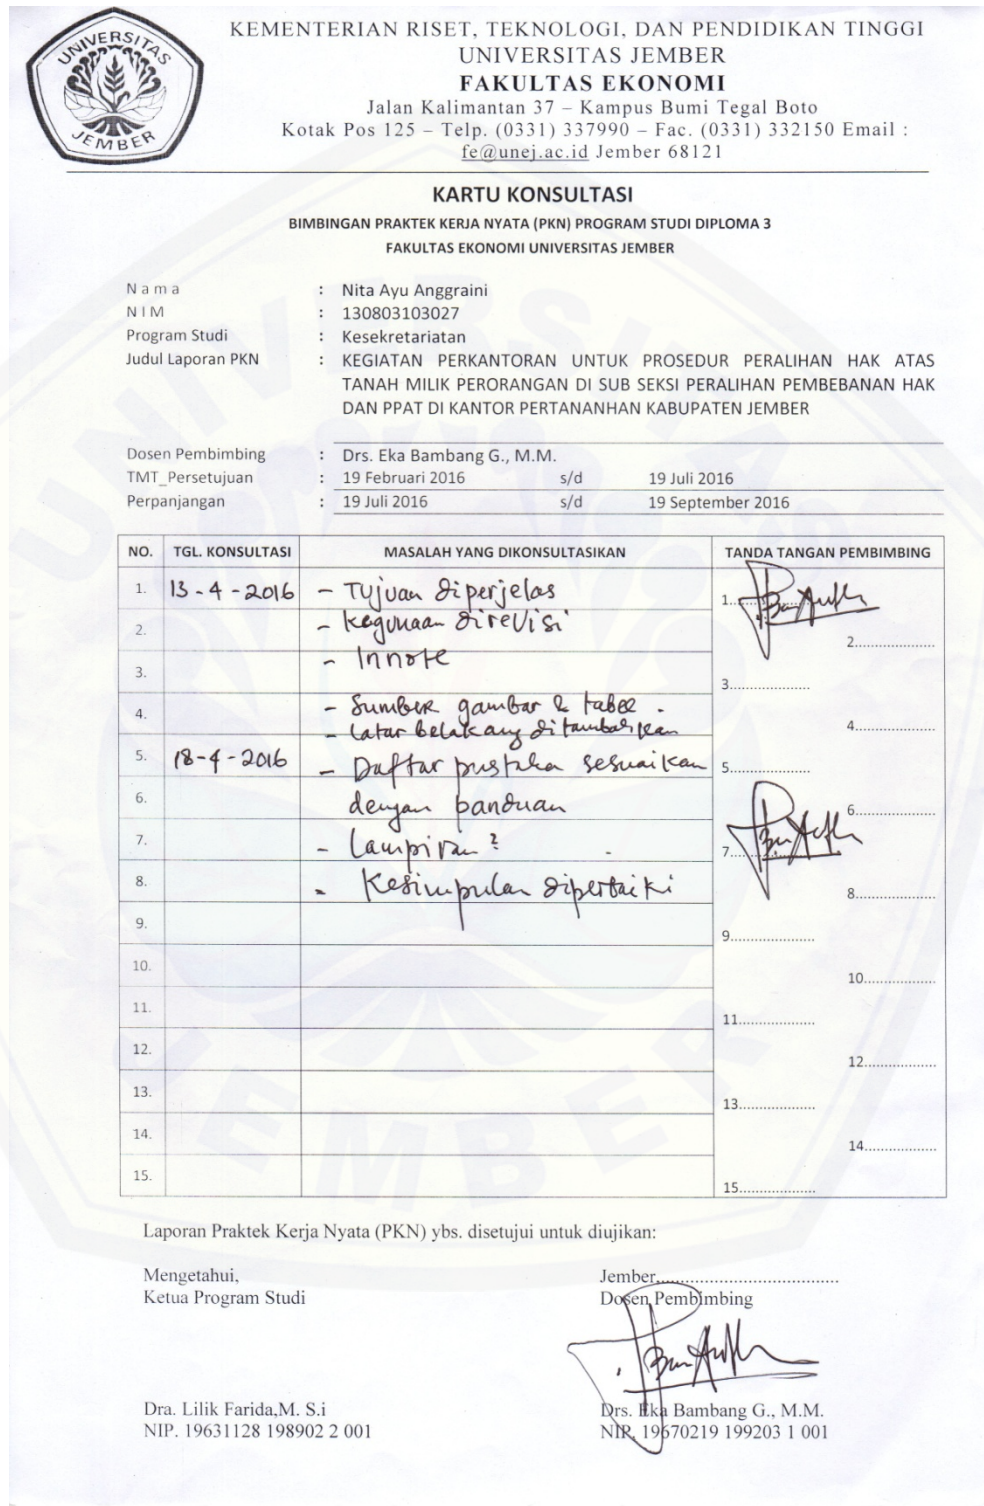 UNIVERSITAS
JEMBER
KEMENTERIAN RISET, TEKNOLOGI, DAN PENDIDIKAN TINGGI
UNIVERSITAS JEMBER
FAKULTAS EKONOMI
Jalan Kalimantan 37 – Kampus Bumi Tegal Boto
Kotak Pos 125 – Telp. (0331) 337990 – Fac. (0331) 332150 Email :
fe@unej.ac.id Jember 68121
KARTU KONSULTASI
BIMBINGAN PRAKTEK KERJA NYATA (PKN) PROGRAM STUDI DIPLOMA 3
FAKULTAS EKONOMI UNIVERSITAS JEMBER
N a m a : Nita Ayu Anggraini
N I M : 130803103027
Program Studi : Kesekretariatan
Judul Laporan PKN : KEGIATAN PERKANTORAN UNTUK PROSEDUR PERALIHAN HAK ATAS
TANAH MILIK PERORANGAN DI SUB SEKSI PERALIHAN PEMBEBANAN HAK
DAN PPAT DI KANTOR PERTANANHAN KABUPATEN JEMBER
Dosen Pembimbing : Drs. Eka Bambang G., M.M.
TMT_Persetujuan : 19 Februari 2016 s/d 19 Juli 2016
Perpanjangan : 19 Juli 2016 s/d 19 September 2016
NO. TGL. KONSULTASI MASALAH YANG DIKONSULTASIKAN TANDA TANGAN PEMBIMBING
1. 13-4-2016 - Tujuan diperjelas 1.....................
2. - Kegunaan direvisi 2.....................
3. - Innote 3.....................
4. - Sumber gambar & tabel. 4.....................
- Latar belakang ditambahkan
5. 18-4-2016 - Daftar pustaka sesuaikan 5.....................
6. dengan panduan 6.....................
7. - Lampiran? 7.....................
8. - Kesimpulan diperbaiki 8.....................
9. 9.....................
10. 10...................
11. 11...................
12. 12...................
13. 13...................
14. 14...................
15. 15...................
Laporan Praktek Kerja Nyata (PKN) ybs. disetujui untuk diujikan:
Mengetahui, Jember,......................................
Ketua Program Studi Dosen Pembimbing
Dra. Lilik Farida,M. S.i Drs. Eka Bambang G., M.M.
NIP. 19631128 198902 2 001 NIP. 19670219 199203 1 001